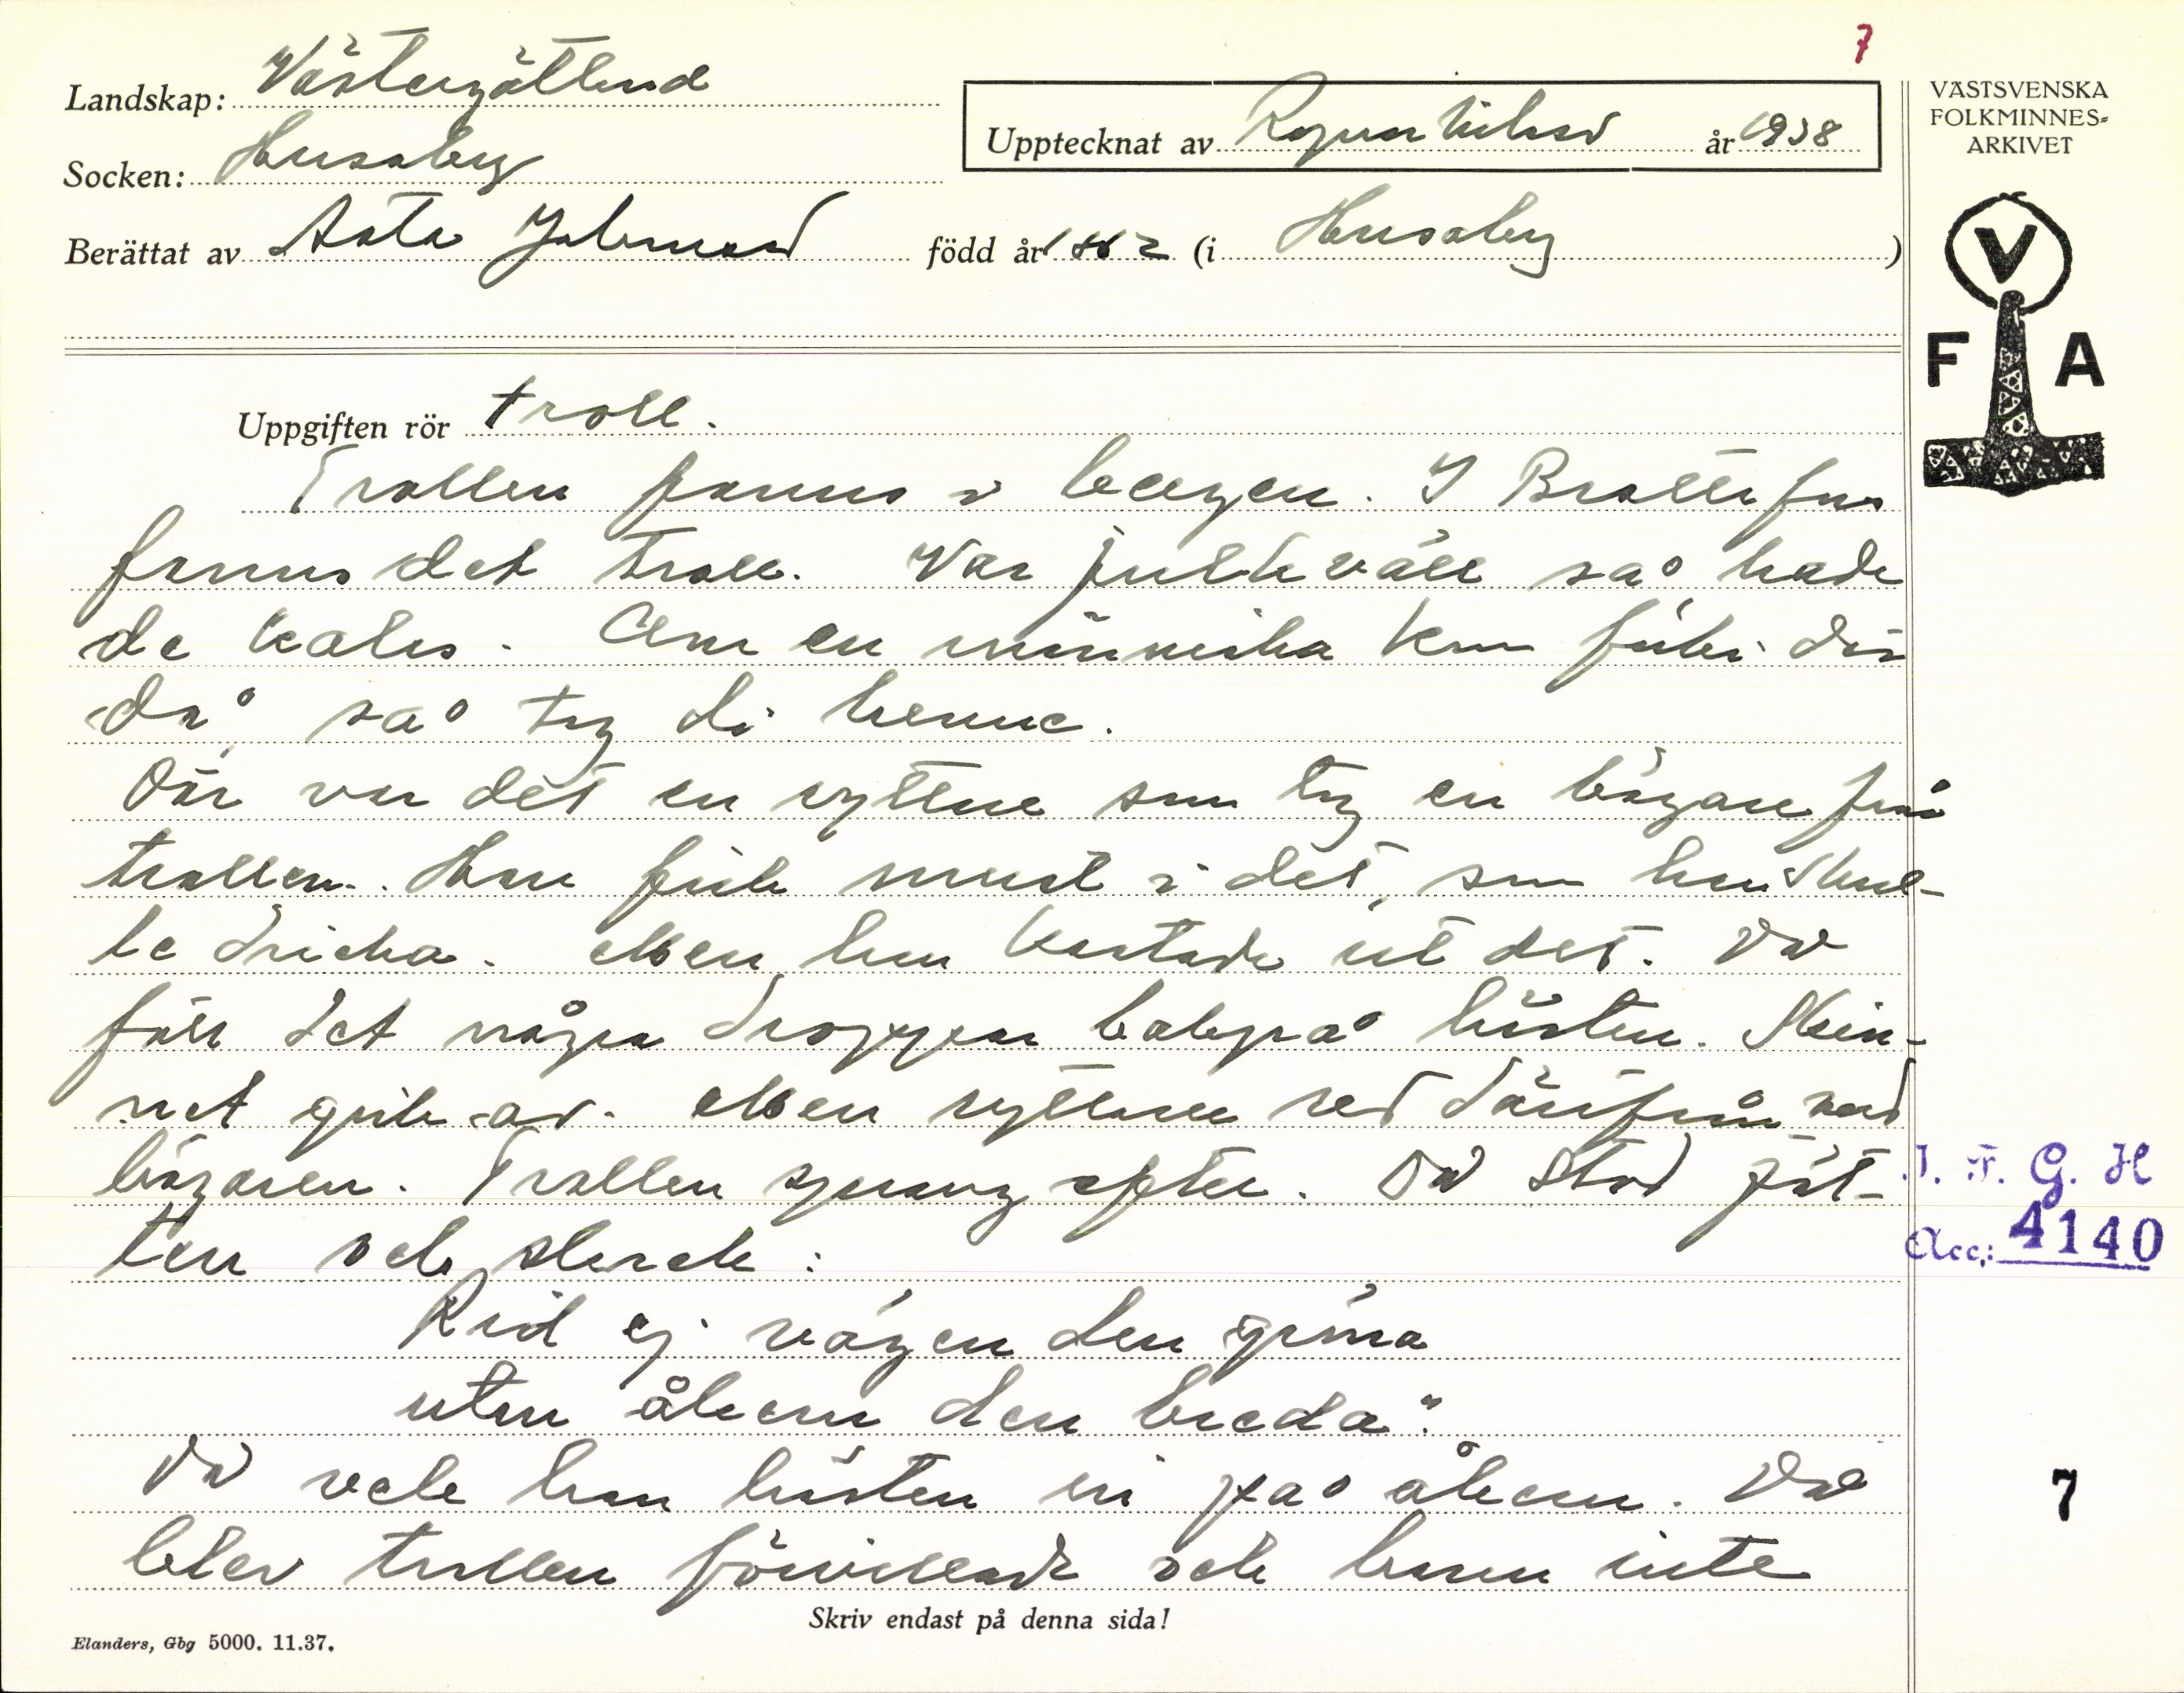 7
Landskap: Västergötland
Socken: Husaby
Upptecknat av Ragnar Nilsson år 1938
VÄSTSVENSKA
FOLKMINNES-
ARKIVET
Berättat av født år (i Husaby)
V
F A
Uppgiften rör troll.
Trollen fanns i bergen. I Brattefors
fanns det troll. Var julkväll så hade
de kalas. Om en människa kom förbi där
då, så tog di henne.
Där var det en ryttare som tog en bägare från
trollen. Han fick nåt i det, som han skul-
le dricka. Men han kastade ut det. Då
föll det några droppar bakpå hästen. Skin-
net gick av. Men ryttaren red därifrån med
bägaren. Trollen sprang efter. Då stod jät-
ten och skrek:
Rid ej vägen den gröna
utan åkern den breda".
Då vek han hästen in på åkern. Då
blev trollen förvillade och hann inte
I. F. G. H
Acc: 4140
7
Skriv endast på denna sida!
Elanders, Gbg 5000. 11.37.